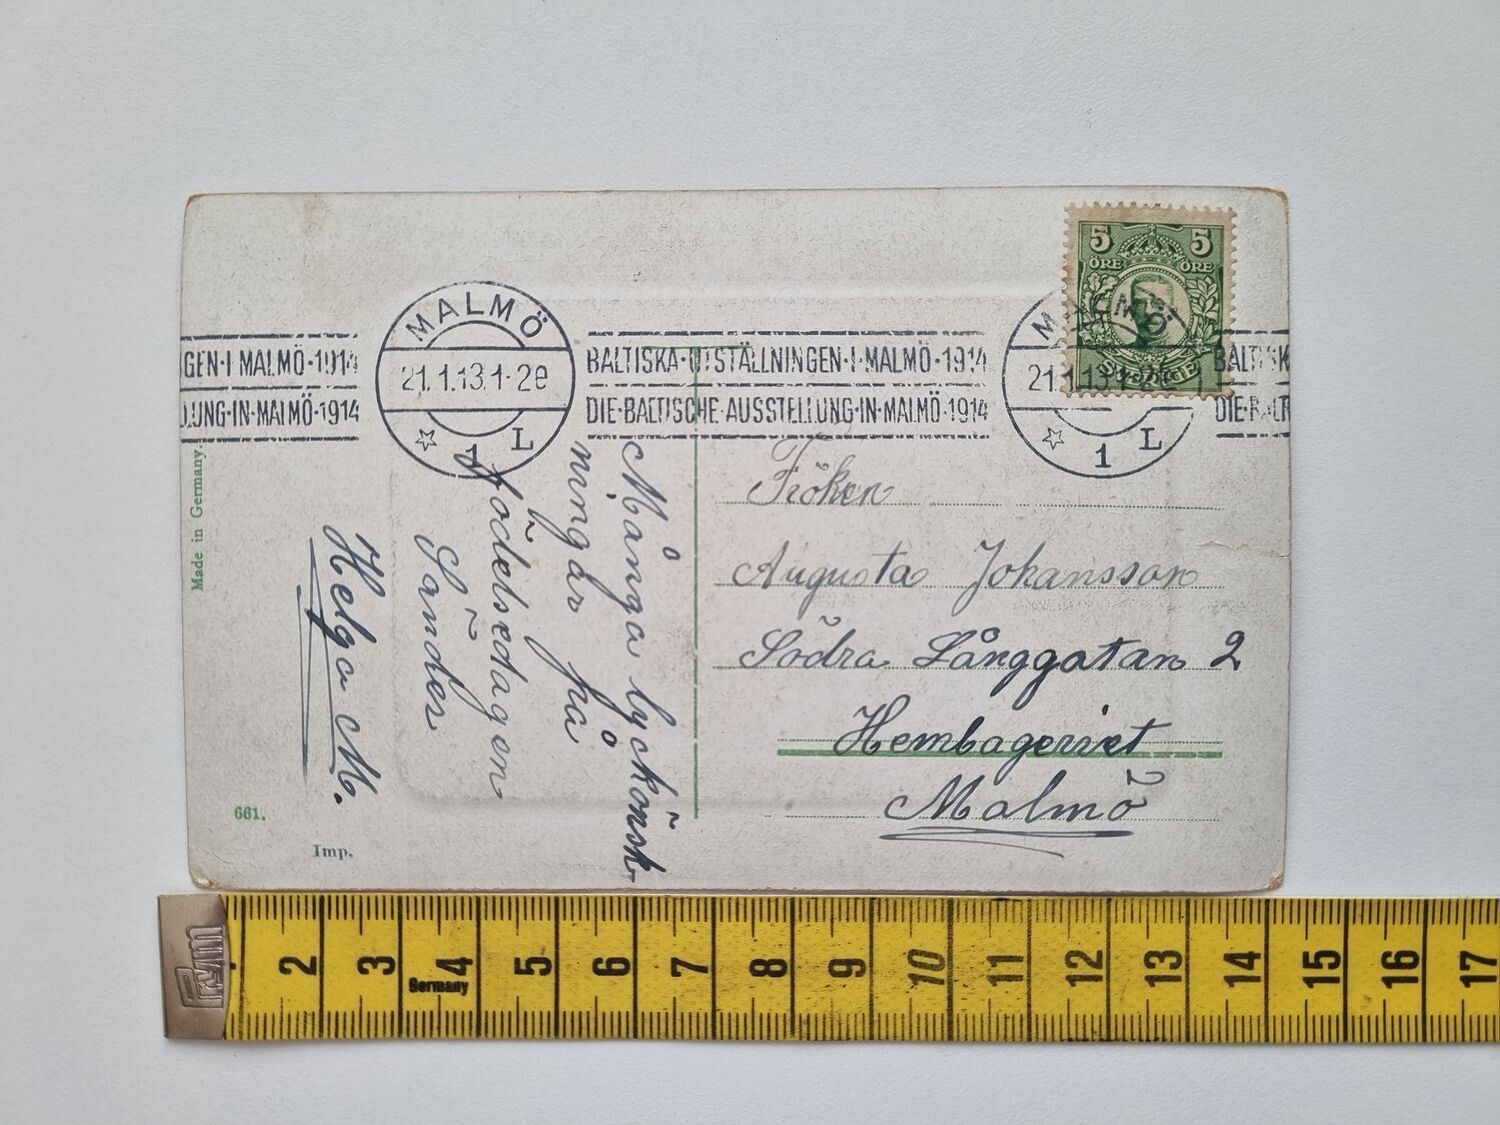 GEN·I MALMÖ·1914
LUNG·IN·MALMÖ·1914
MALMÖ
21.1.13.1-2e
1 L
BALTISKA·UTSTÄLLNINGEN·I·MALMÖ·1914
DIE·BALTISCHE·AUSSTELLUNG·IN·MALMÖ·1914
5 5
ÖRE ÖRE
SVERIGE
MALMÖ
21.1.13.1-2e
1 L
BALTISK
DIE·BALT
Made in Germany.
Många lyckönsk-
ningar på
födelsedagen
Sänder
Helga M.
Fröken
Augusta Johansson
Södra Långgatan 2
Hembageriet
Malmö
661.
Imp.
Prym
2 3 4 5 6 7 8 9 10 11 12 13 14 15 16 17
Germany